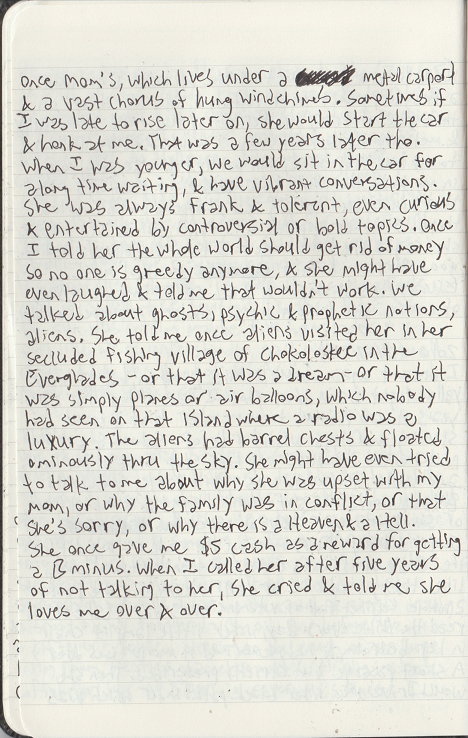 once mom's, which lives under a metal carport
& a vast chorus of hung windchimes. Sometimes if
I was late to rise later on, she would start the car
& honk at me. That was a few years later tho.
When I was younger, we would sit in the car for
a long time waiting, & have vibrant conversations.
She was always frank & tolerent, even curious
& entertained by controversial or bold topics. Once
I told her the whole world should get rid of money
so no one is greedy anymore, & she might have
even laughed & told me that wouldn't work. We
talked about ghosts, psychic & prophetic notions,
aliens. She told me once aliens visited her in her
secluded fishing village of Chokoloskee in the
Everglades - or that it was a dream - or that it
was simply planes or air balloons, which nobody
had seen on that island where a radio was a
luxury. The aliens had barrel chests & floated
ominously thru the sky. She might have even tried
to talk to me about why she was upset with my
mom, or why the family was in conflict, or that
she's sorry, or why there is a Heaven & a Hell.
She once gave me $5 cash as a reward for getting
a B minus. When I called her after five years
of not talking to her, she cried & told me she
loves me over & over.